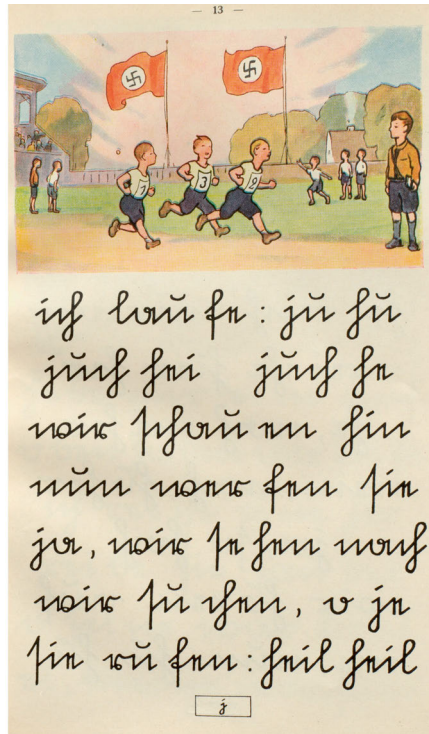 — 13 —
ich lau fe : ju hu
juch hei juch he
wir schau en hin
nun wer fen sie
ja, wir se hen nach
wir su chen, o je
sie ru fen : heil heil
j
7
3
9